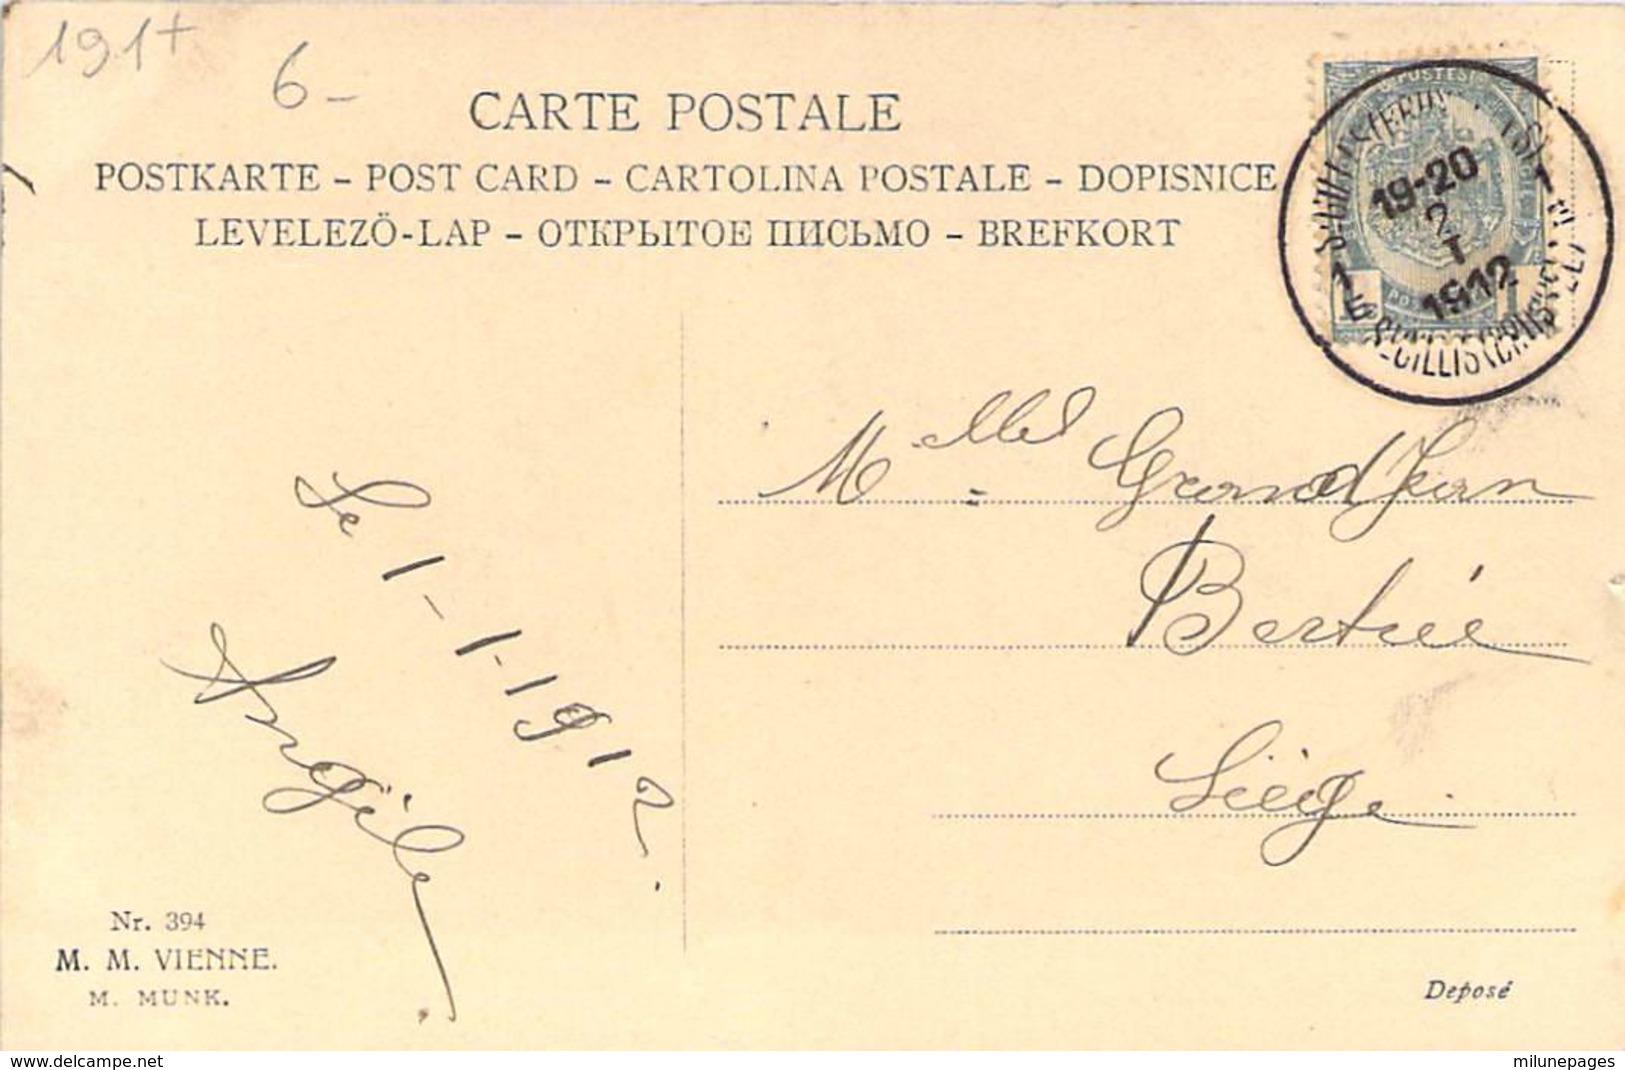 191+
6-
CARTE POSTALE
POSTKARTE – POST CARD – CARTOLINA POSTALE – DOPISNICE
LEVELEZÖ-LAP – ОТКРЫТОЕ ПИСЬМО – BREFKORT
POSTES
19-20
2
I
1912
1
1
Melle Grandjean
Bertine
Liège
Le 1-1-1912.
Angèle
Nr. 394
M. M. VIENNE.
M. MUNK.
Deposé
www.delcampe.net
milunepages